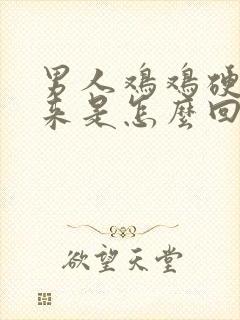 男人鸡鸡硬
来是怎麼回
欲望天堂